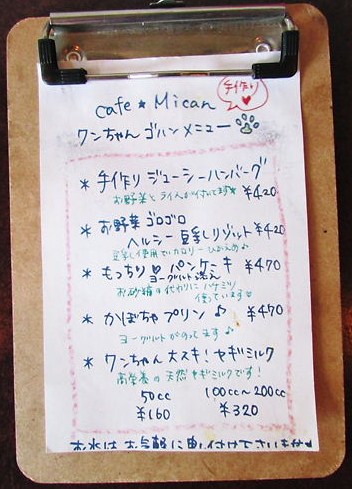 cafe * Mican
手作り
ワンちゃん ゴハン メニュー
* 手作り ジューシーハンバーグ
お野菜とライスが付いてます* ¥420
* お野菜ゴロゴロ
ヘルシー豆乳リゾット ¥420
豆乳使用でカロリーひかえめ♪
* もっちり♥パンケーキ ¥470
ヨーグルト添え
お砂糖の代わりにハチミツ
使っています
* かぼちゃプリン♪ ¥470
ヨーグルトがのってます♪
* ワンちゃん大スキ!ヤギミルク
高栄養の天然ヤギミルクです!
50cc 100cc~200cc
¥160 ¥320
お水はお気軽に申し付けて下さいませ